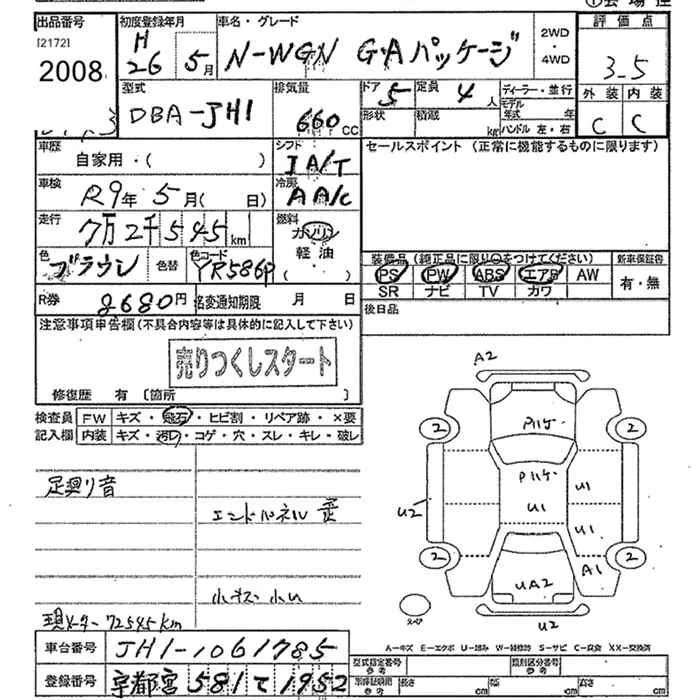 ①会場控
出品番号 初度登録年月 車名・グレード 2WD・4WD 評価点
[2172]
2008 H26 5月 N-WGN G・Aパッケージ 3.5
型式 排気量 ドア 定員 ディーラー・並行 外装 内装
DBA-JH1 660cc 5 4人 モデル年式 年 C C
形状 積載 kg ハンドル 左・右
車歴 自家用・( ) シフト IA/T セールスポイント(正常に機能するものに限ります)
車検 R9年5月( 日) 冷房 AA/C
走行 7万2千545km 燃料 ガソリン
軽油
( )
色 ブラウン 色替 色コード YR586P
装備品(純正品に限り○をつけてください) 新車保証書
PS PW ABS エアB AW 有・無
SR ナビ TV カワ
R券 8680円 名変通知期限 月 日 後日品
注意事項申告欄(不具合内容等は具体的に記入して下さい)
売りつくしスタート
修復歴 有 〔箇所 〕
検査員 FW キズ・飛石・ヒビ割・リペア跡・×要
記入欄 内装 キズ・汚れ・コゲ・穴・スレ・キレ・破レ
足廻り音
エンドパネル 歪
小キズ 小凹
現メーター 72545km
A2
2 2
Pハケ
Pハケ
U1 U1
U2 U1
2 2
UA2 A1
スペア
U2
A=キズ E=エクボ U=凹み W=補修跡 S=サビ C=腐食 XX=交換済
車台番号 JH1-1061785
型式指定番号 参考 類別区分番号 参考
登録番号 宇都宮 581 て 1952
車庫証明用 参考 長さ cm 幅 cm 高さ cm